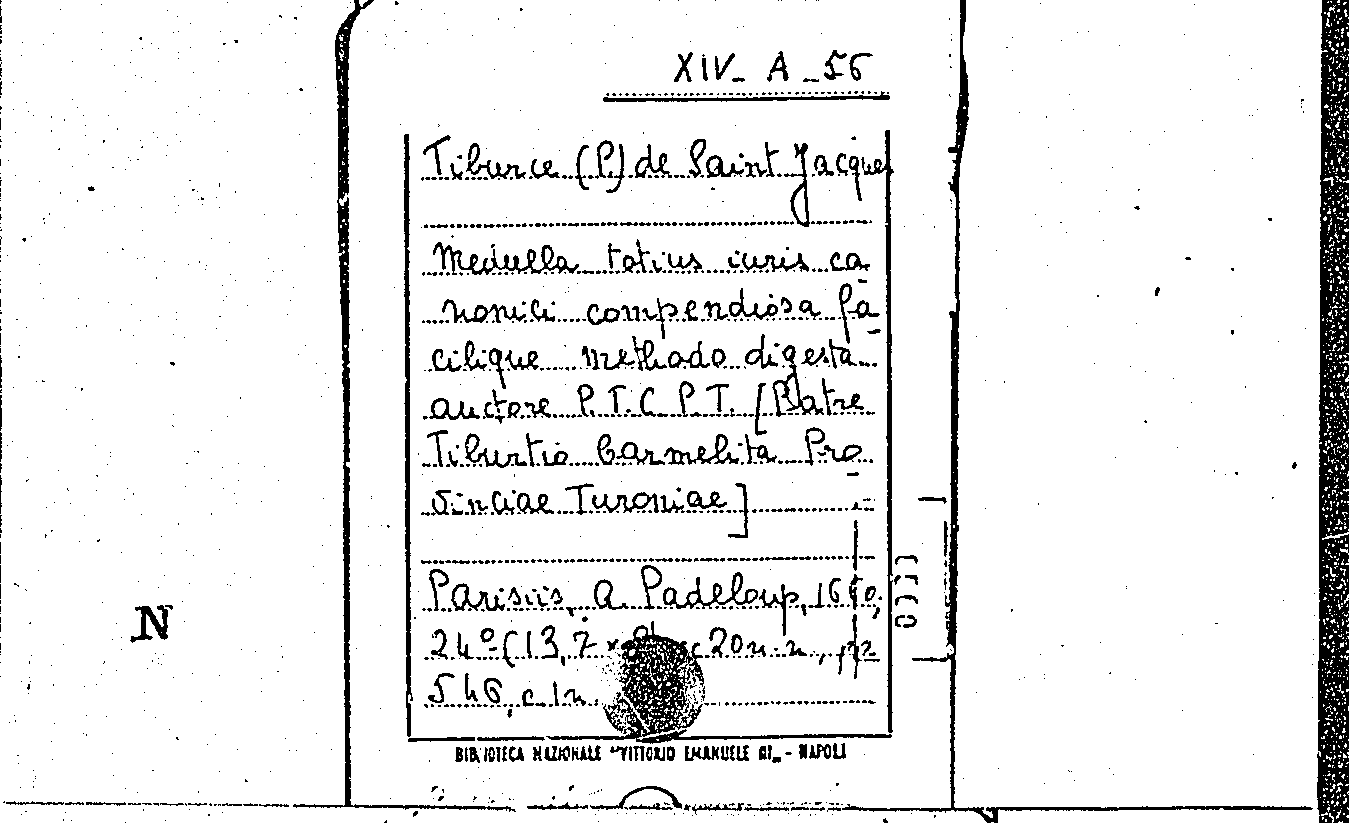 XIV_ A _56
Tiburce (P.) de Saint Jacques
Medulla totius iuris ca_
nonici compendiosa fa_
cilique methodo digesta
auctore P.T.C.P.T. [Patre
Tiburtio Carmelita Pro_
vinciae Turoniae]
Parisiis, A. Padeloup,
N
24º (13,7 x 20 n.n., pp
546, c. 1 n.
BIBLIOTECA NAZIONALE "VITTORIO EMANUELE III„ - NAPOLI